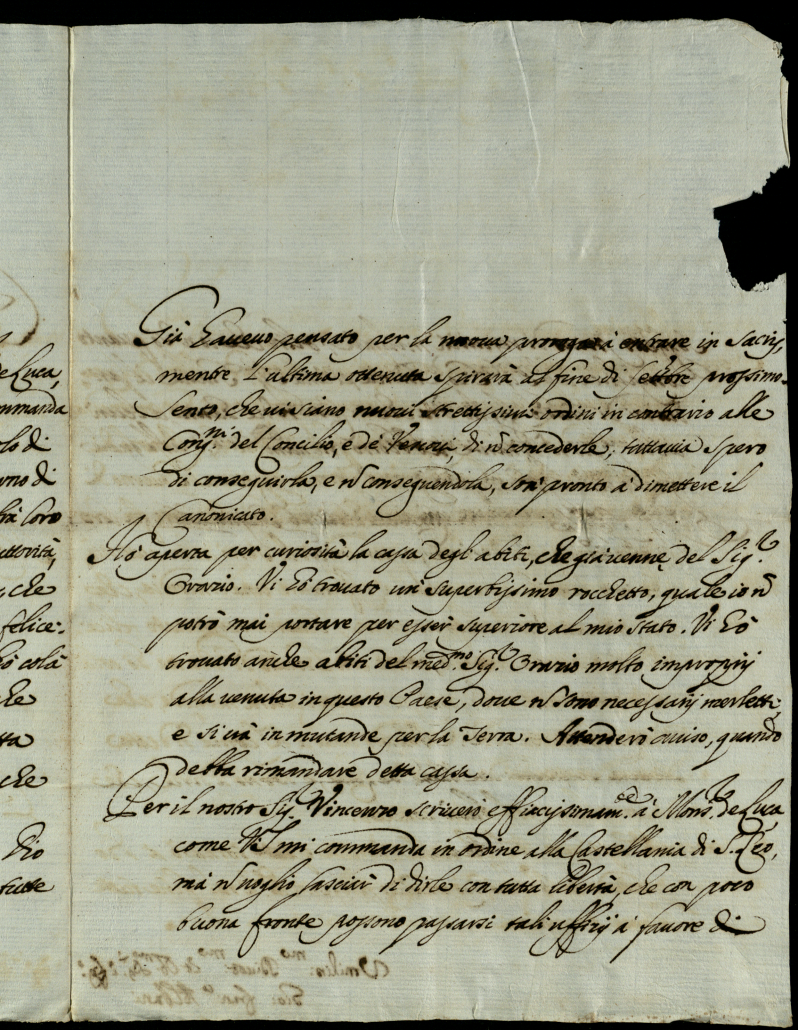 Già haveuo pensato per la nuoua proroga à entrare in Sacris,
mentre l'ultima ottenuta spirarà al fine di 7ettbre prossimo.
Sento, che ui siano nuoui strettissimi ordini in contrario alle
Cong.ni del Concilio, e de' Vescoui, di ñ concederle, tuttauia spero
di conseguirla, e ñ conseguendola, sarò pronto à dimettere il
Canonicato.
Hò aperta per curiosità la cassa degl'abiti, che già uenne del Sig.r
Orazio. Vi hò trouato un superbissimo rocchetto, quale io ñ
potrò mai portare per esser superiore al mio stato. Vi hò
trouato anche abiti del med.mo Sig.r Orazio molto improprij
alla uenuta in questo Paese, doue ñ sono necessarij merletti,
e si uà in mutande per la Terra. Attenderò auuiso, quando
debba rimandare detta cassa.
Per il nostro Sig.r Vincenzo scriuerò efficacissimam.e à Mons.r de Luca
come VS mi commanda in ordine alla Castellania di S. Leo,
mà ñ uoglio lasciar di dirle con tutta libertà, che con poco
buona fronte possono passarsi tali uffizij à fauore di
de Luca,
ommanda
lo di
uno di
trà loro
uttorità,
che
felice:
hò colà
che
tta
che
Dio
tutte